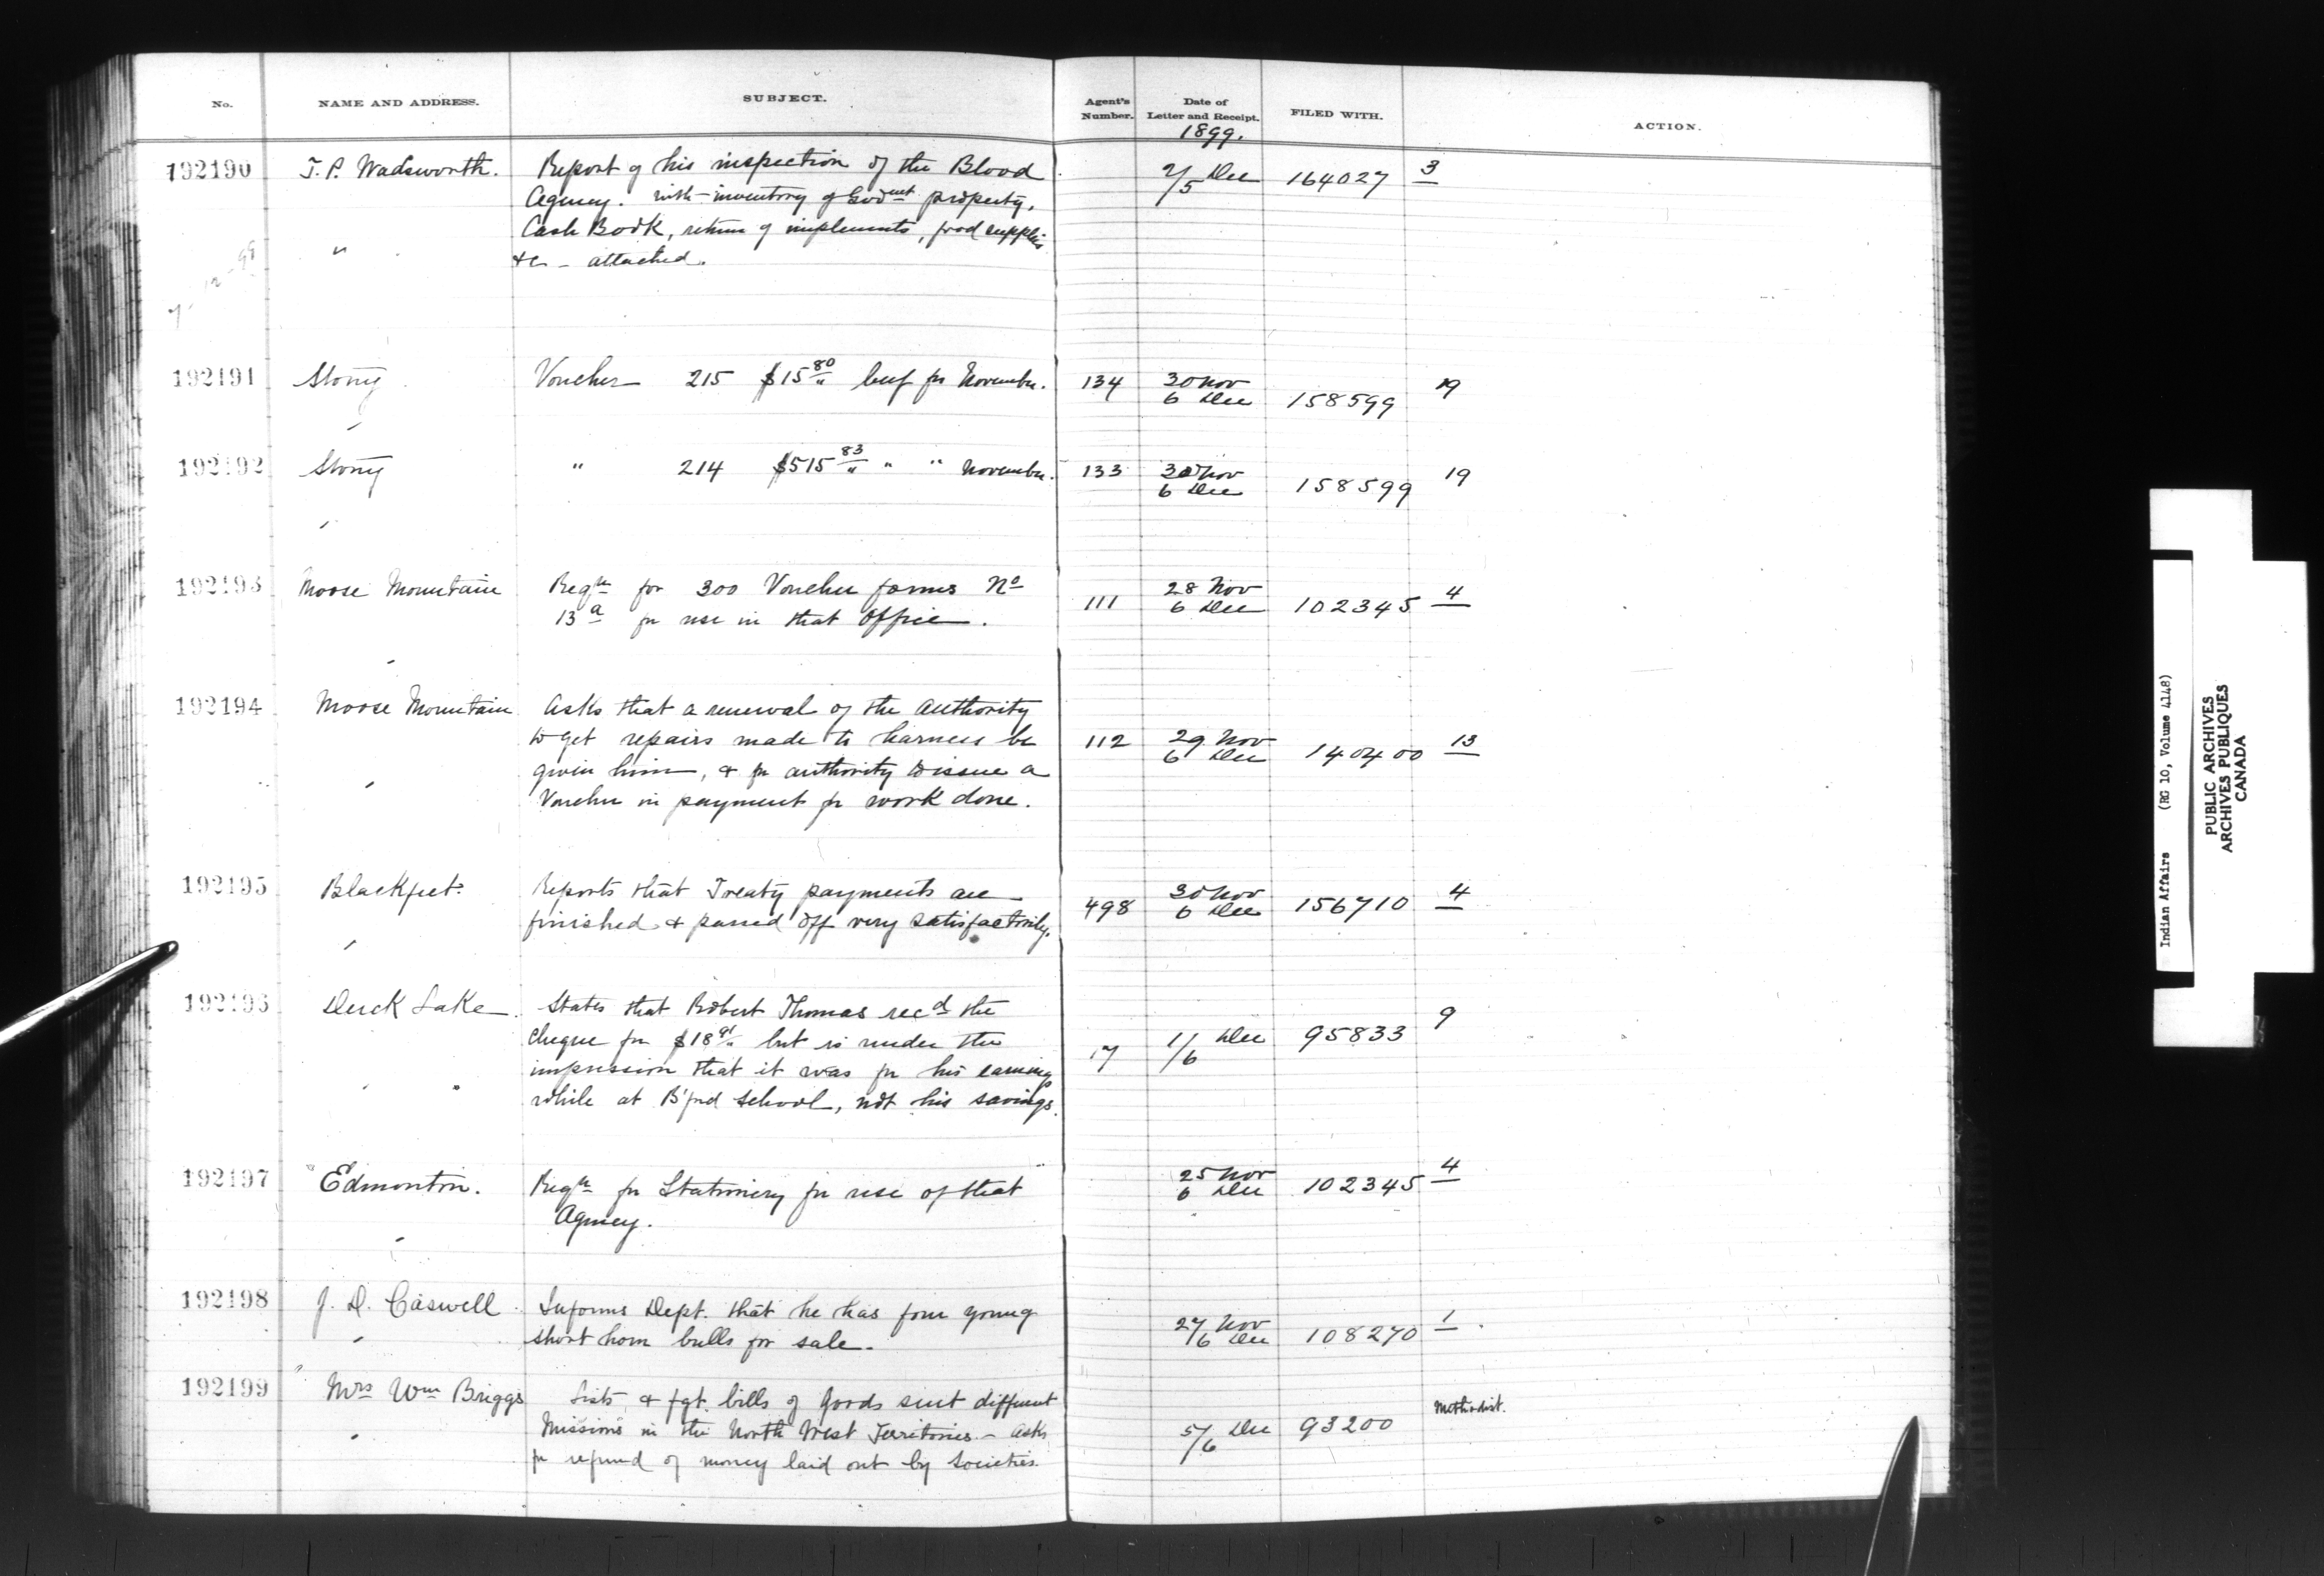 No. NAME AND ADDRESS. SUBJECT. Agent's Number. Date of Letter and Receipt. FILED WITH. ACTION.
1899.
192190 T. P. Wadsworth. Report of his inspection of the Blood 2/5 Dec 164027 3
Agency. with inventory of Govmt property,
" Cash Book, return of implements, food supplies
&c – attached.
192191 Stony Voucher 215 $15 80/" beef for November. 134 30 Nov 6 Dec 158599 19
192192 Stony " 214 $515 83/" " " November. 133 30 Nov 6 Dec 158599 19
192193 Moose Mountain Reqn for 300 Voucher forms No 111 28 Nov 6 Dec 102345 4
13a for use in that Office.
192194 Moose Mountain Asks that a renewal of the authority
to get repairs made to harness be 112 29 Nov 6 Dec 140400 13
given him, & for authority to issue a
Voucher in payment for work done.
192195 Blackfeet. Reports that Treaty payments are 498 30 Nov 6 Dec 156710 4
finished & passed off very satisfactorily.
192196 Duck Lake. States that Robert Thomas recd the 9
cheque for $18 91/" but is under the 17 1/6 Dec 95833
impression that it was for his earnings
while at B'ford School, not his savings.
192197 Edmonton. Reqn for Stationery for use of that 25 Nov 6 Dec 102345 4
Agency.
192198 J. D. Caswell Informs Dept. that he has four young 27 Nov 6 Dec 108270 1
short horn bulls for sale.
192199 Mrs Wm Briggs Lists & fgt. bills of goods sent different Methodist.
Missions in the North West Territories – asks 5/6 Dec 93200
for refund of money laid out by Societies.
Indian Affairs (RG 10, Volume 4148)
PUBLIC ARCHIVES
ARCHIVES PUBLIQUES
CANADA